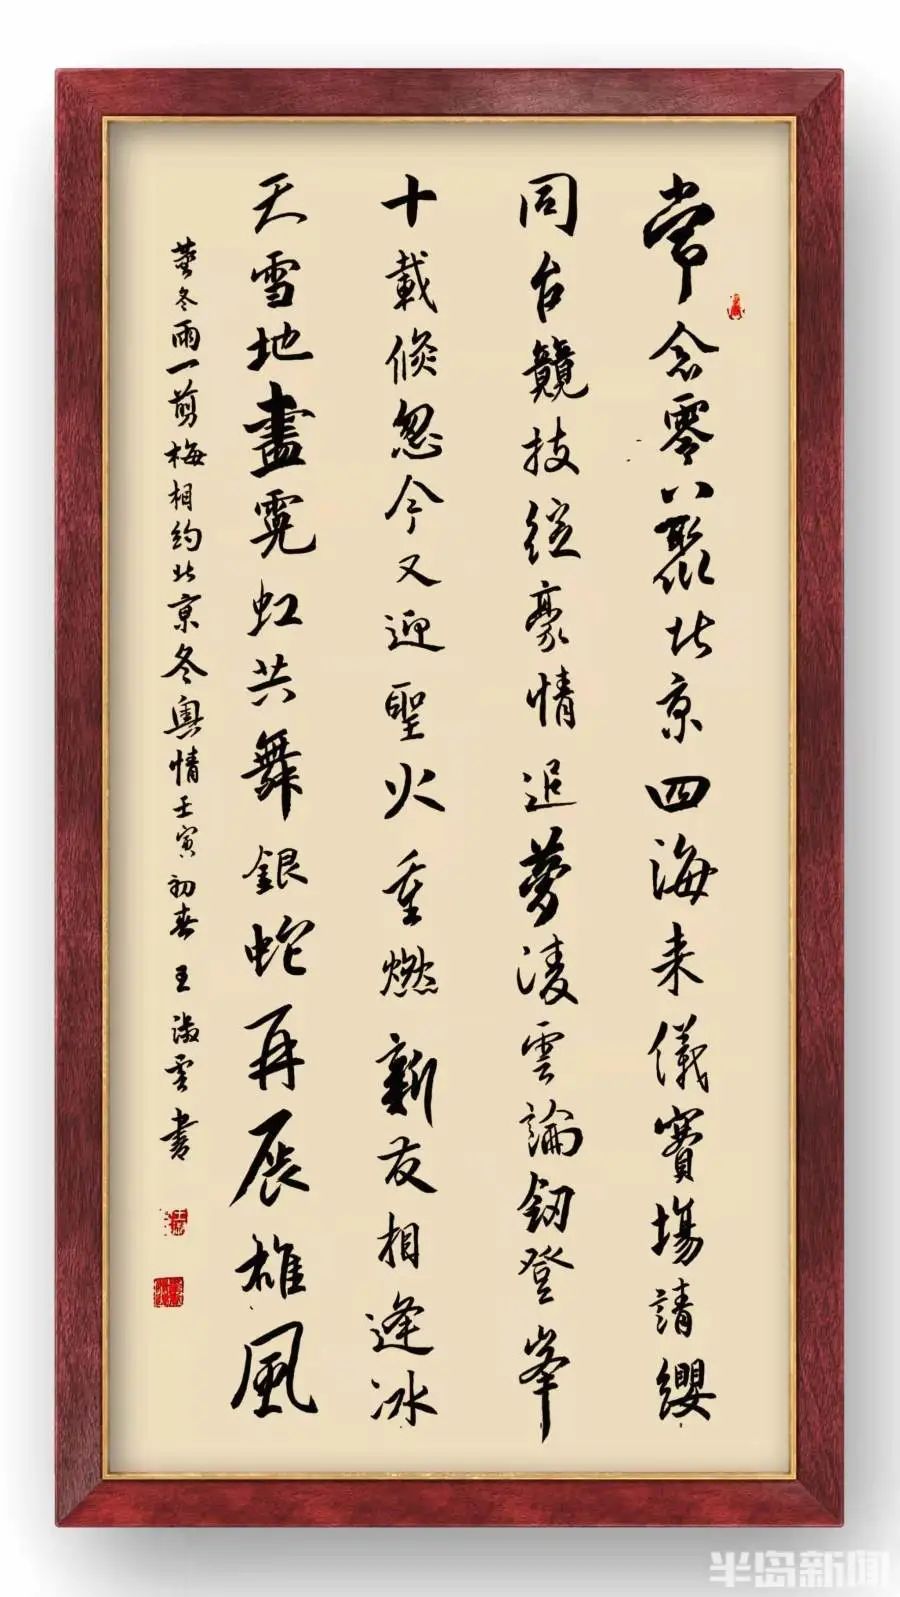 常念零八聚北京四海来儀賽場請纓
同台競技縱豪情追夢淩雲論釼登峯
十載倏忽今又迎聖火重燃新友相逢冰
天雪地盡霓虹共舞銀蛇再展雄風
董冬雨一剪梅相約北京冬奧情壬寅初春王淑雲書
半岛新闻